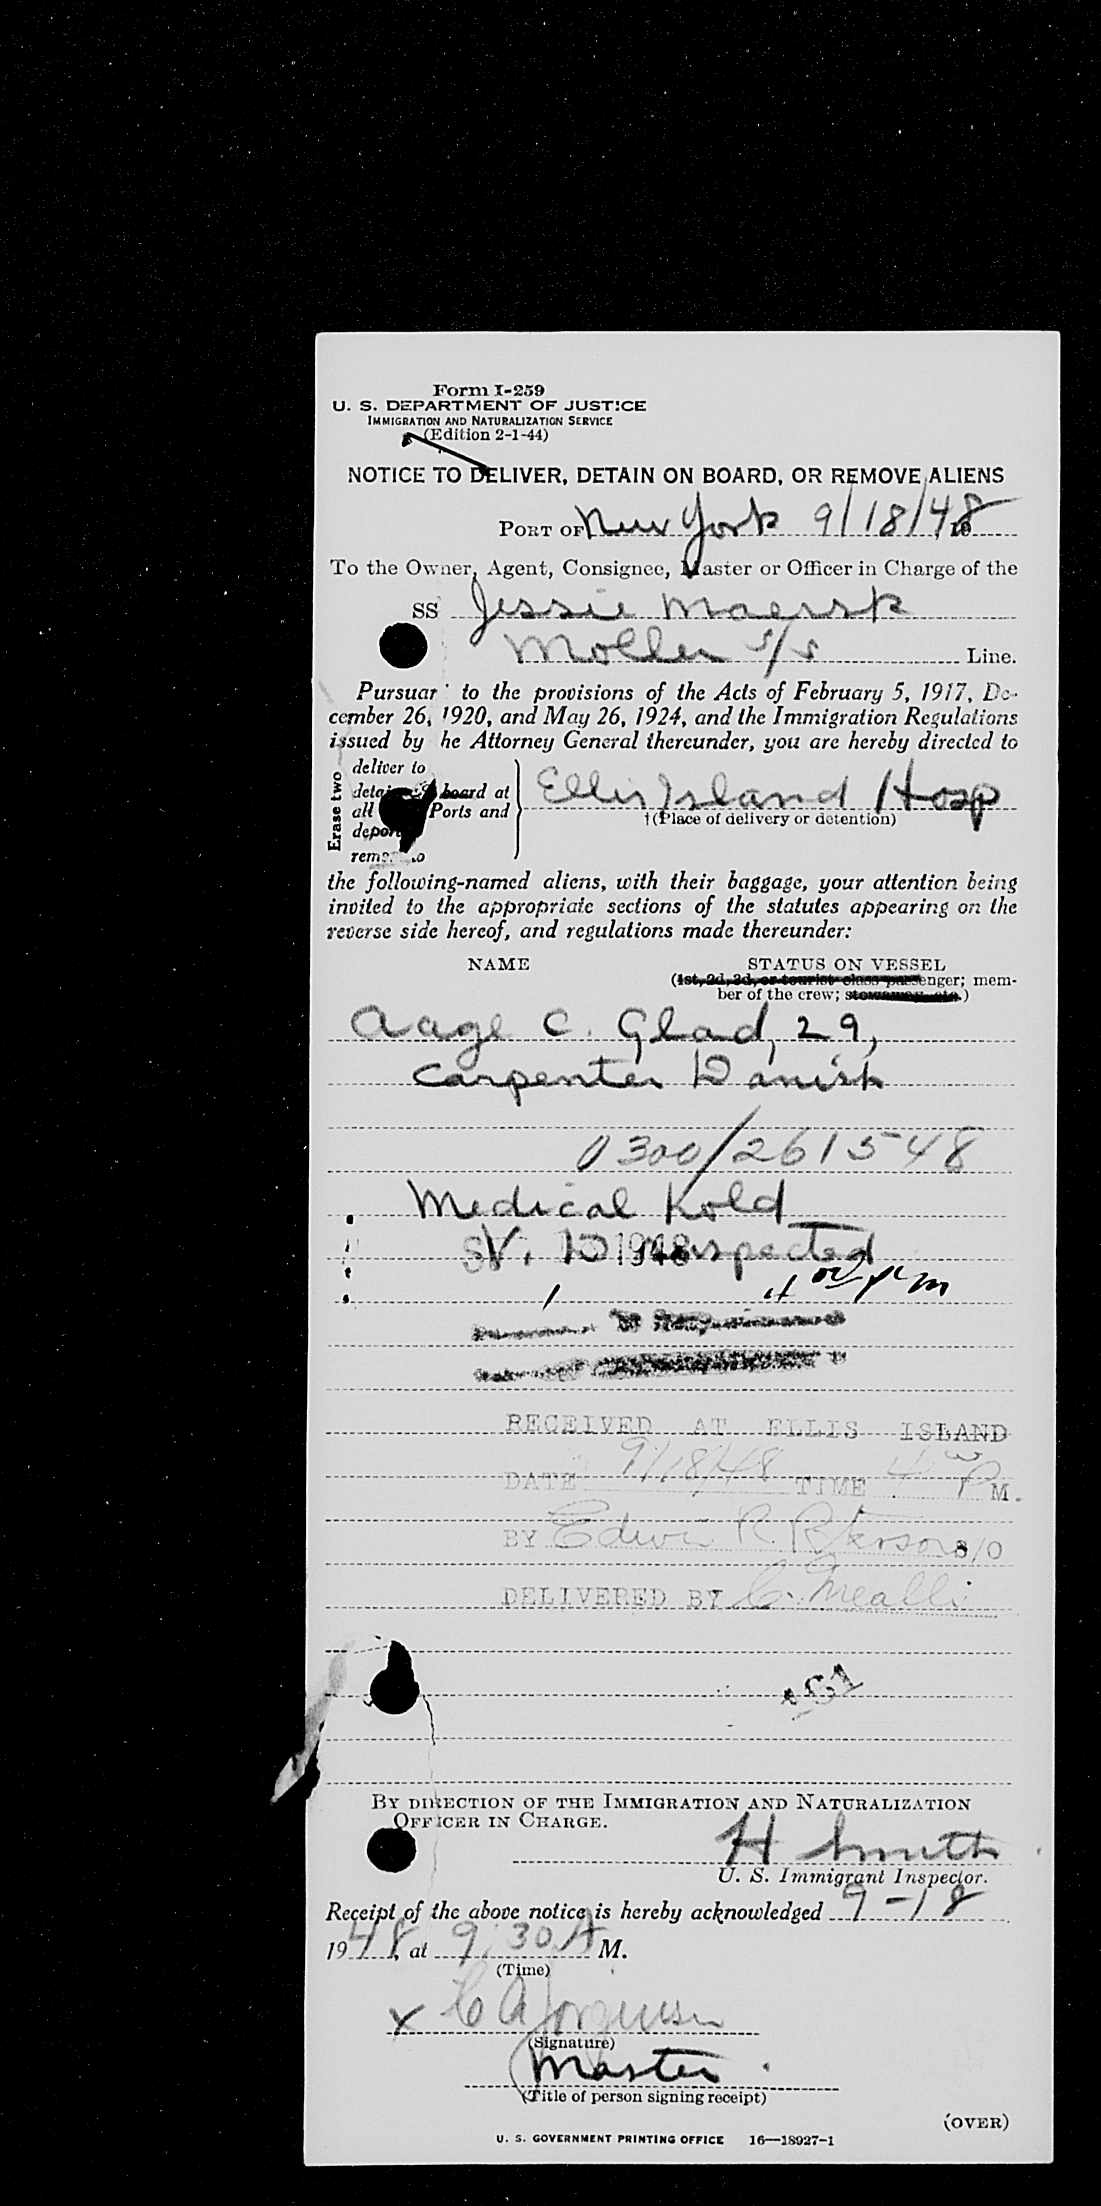 Form I-259
U. S. DEPARTMENT OF JUSTICE
IMMIGRATION AND NATURALIZATION SERVICE
(Edition 2-1-44)
NOTICE TO DELIVER, DETAIN ON BOARD, OR REMOVE ALIENS
PORT OF New York 9/18/48
To the Owner, Agent, Consignee, Master or Officer in Charge of the
SS Jessie Maersk
Moller s/s Line.
Pursuan to the provisions of the Acts of February 5, 1917, De-
cember 26, 1920, and May 26, 1924, and the Immigration Regulations
issued by he Attorney General thereunder, you are hereby directed to
Erase two
deliver to
board at
all Ports and
Ellis Island Hosp
†(Place of delivery or detention)
the following-named aliens, with their baggage, your attention being
invited to the appropriate sections of the statutes appearing on the
reverse side hereof, and regulations made thereunder:
NAME STATUS ON VESSEL
(1st, 2d, 3d, or tourist class passenger; mem-
ber of the crew; stowaway, etc.)
Aage C. Glad, 29,
Carpenter Danish
0300/261548
Medical Hold
1948
4 00 pm
RECEIVED AT ELLIS ISLAND
DATE 9/18/48 TIME 4 P M.
BY Edwin R. Peterson S/O
DELIVERED BY C. Mealli
BY DIRECTION OF THE IMMIGRATION AND NATURALIZATION
OFFICER IN CHARGE.
H Smith
U. S. Immigrant Inspector.
Receipt of the above notice is hereby acknowledged 9-18
1948, at 9:30 A M.
(Time)
x C A Jorgensen
(Signature)
Master
(Title of person signing receipt)
(OVER)
U. S. GOVERNMENT PRINTING OFFICE 16—18927-1